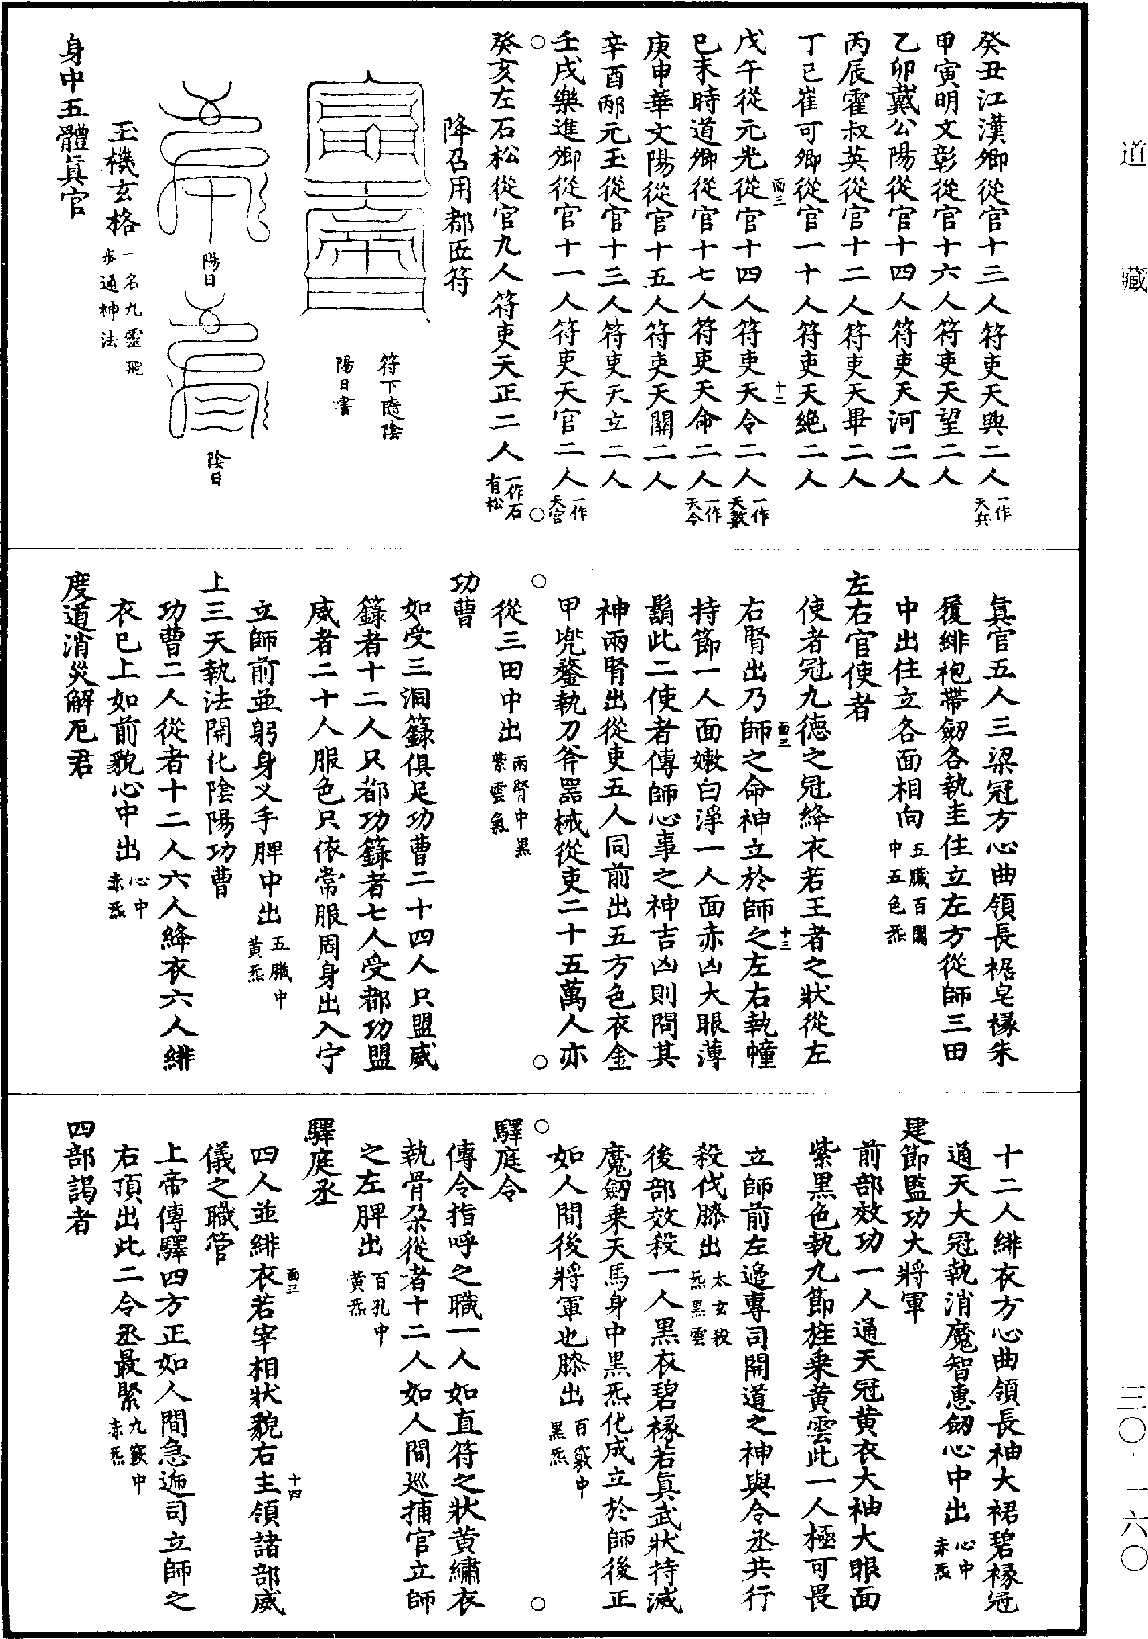 道藏
癸丑江漢卿從官十三人符吏天與二人一作天兵
甲寅明文彰從官十六人符吏天望二人
乙卯戴公陽從官十四人符吏天河二人
丙辰霍叔英從官十二人符吏天畢二人
丁巳崔可卿從官一十人符吏天絶二人
戊午從元光從官十四人符吏天令二人一作天數
己未時道卿從官十七人符吏天命二人一作天令
庚申華文陽從官十五人符吏天關二人
辛酉邴元玉從官十三人符吏天立二人
壬戌樂進卿從官十一人符吏天官二人一作天宫
癸亥左石松從官九人符吏天正二人一作石有松
降召用都匠符
符下隨陰
陽日書
陽日
陰日
玉機玄格一名九靈飛步通神法
身中五體真官
真官五人三梁冠方心曲領長裾皂襈朱
履緋袍帶劒各執圭住立左方從師三田
中出住立各面相向五臟百關中五色炁
左右官使者
使者冠九德之冠絳衣若王者之狀從左
右腎出乃師之命神立於師之左右執幢
持節一人面嫩白淨一人面赤凶大眼薄
鬚此二使者傳師心事之神吉凶則問其
神兩腎出從吏五人同前出五方色衣金
甲兜鍪執刀斧器械從吏二十五萬人亦
從三田中出兩腎中黑紫雲氣
功曹
如受三洞籙俱足功曹二十四人只盟威
籙者十二人只都功籙者七人受都功盟
威者二十人服色只依常服周身出入宁
立師前並躬身义手脾中出五臟中黄炁
上三天執法開化陰陽功曹
功曹二人從者十二人六人絳衣六人緋
衣已上如前貌心中出心中赤炁
度道消災解厄君
十二人緋衣方心曲領長袖大裙碧襈冠
通天大冠執消魔智惠劒心中出心中赤炁
建節監功大將軍
前部效功一人通天冠黄衣大袖大眼面
紫黑色執九節旌乗黄雲此一人極可畏
立師前左邊專司開道之神與令丞共行
殺伐膝出太玄殺炁黑雲
後部效殺一人黑衣碧襈若真武狀持滅
魔劒乗天馬身中黑炁化成立於師後正
如人間後將軍也膝出百竅中黑炁
驛庭令
傳令指呼之職一人如直符之狀黄繡衣
執骨朶從者十二人如人間巡捕官立師
之左脾出百孔中黄炁
驛庭丞
四人並緋衣若宰相狀貌右主領諸部威
儀之職管
上帝傳驛四方正如人間急遞司立師之
右頂出此二令丞最緊九竅中赤炁
四部謁者
三〇·一六〇